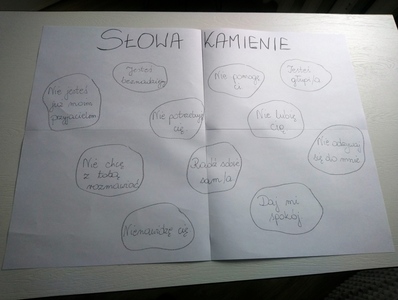 SŁOWA KAMIENIE
Jesteś
beznadziejny
Nie pomogę
ci
Jesteś
głupi/a
Nie jesteś
już moim
przyjacielem
Nie potrzebuję
cię
Nie lubię
cię
Nie odzywaj
się do mnie
Nie chcę
z tobą
rozmawiać
Radź sobie
sam/a
Daj mi
spokój
Nienawidzę cię